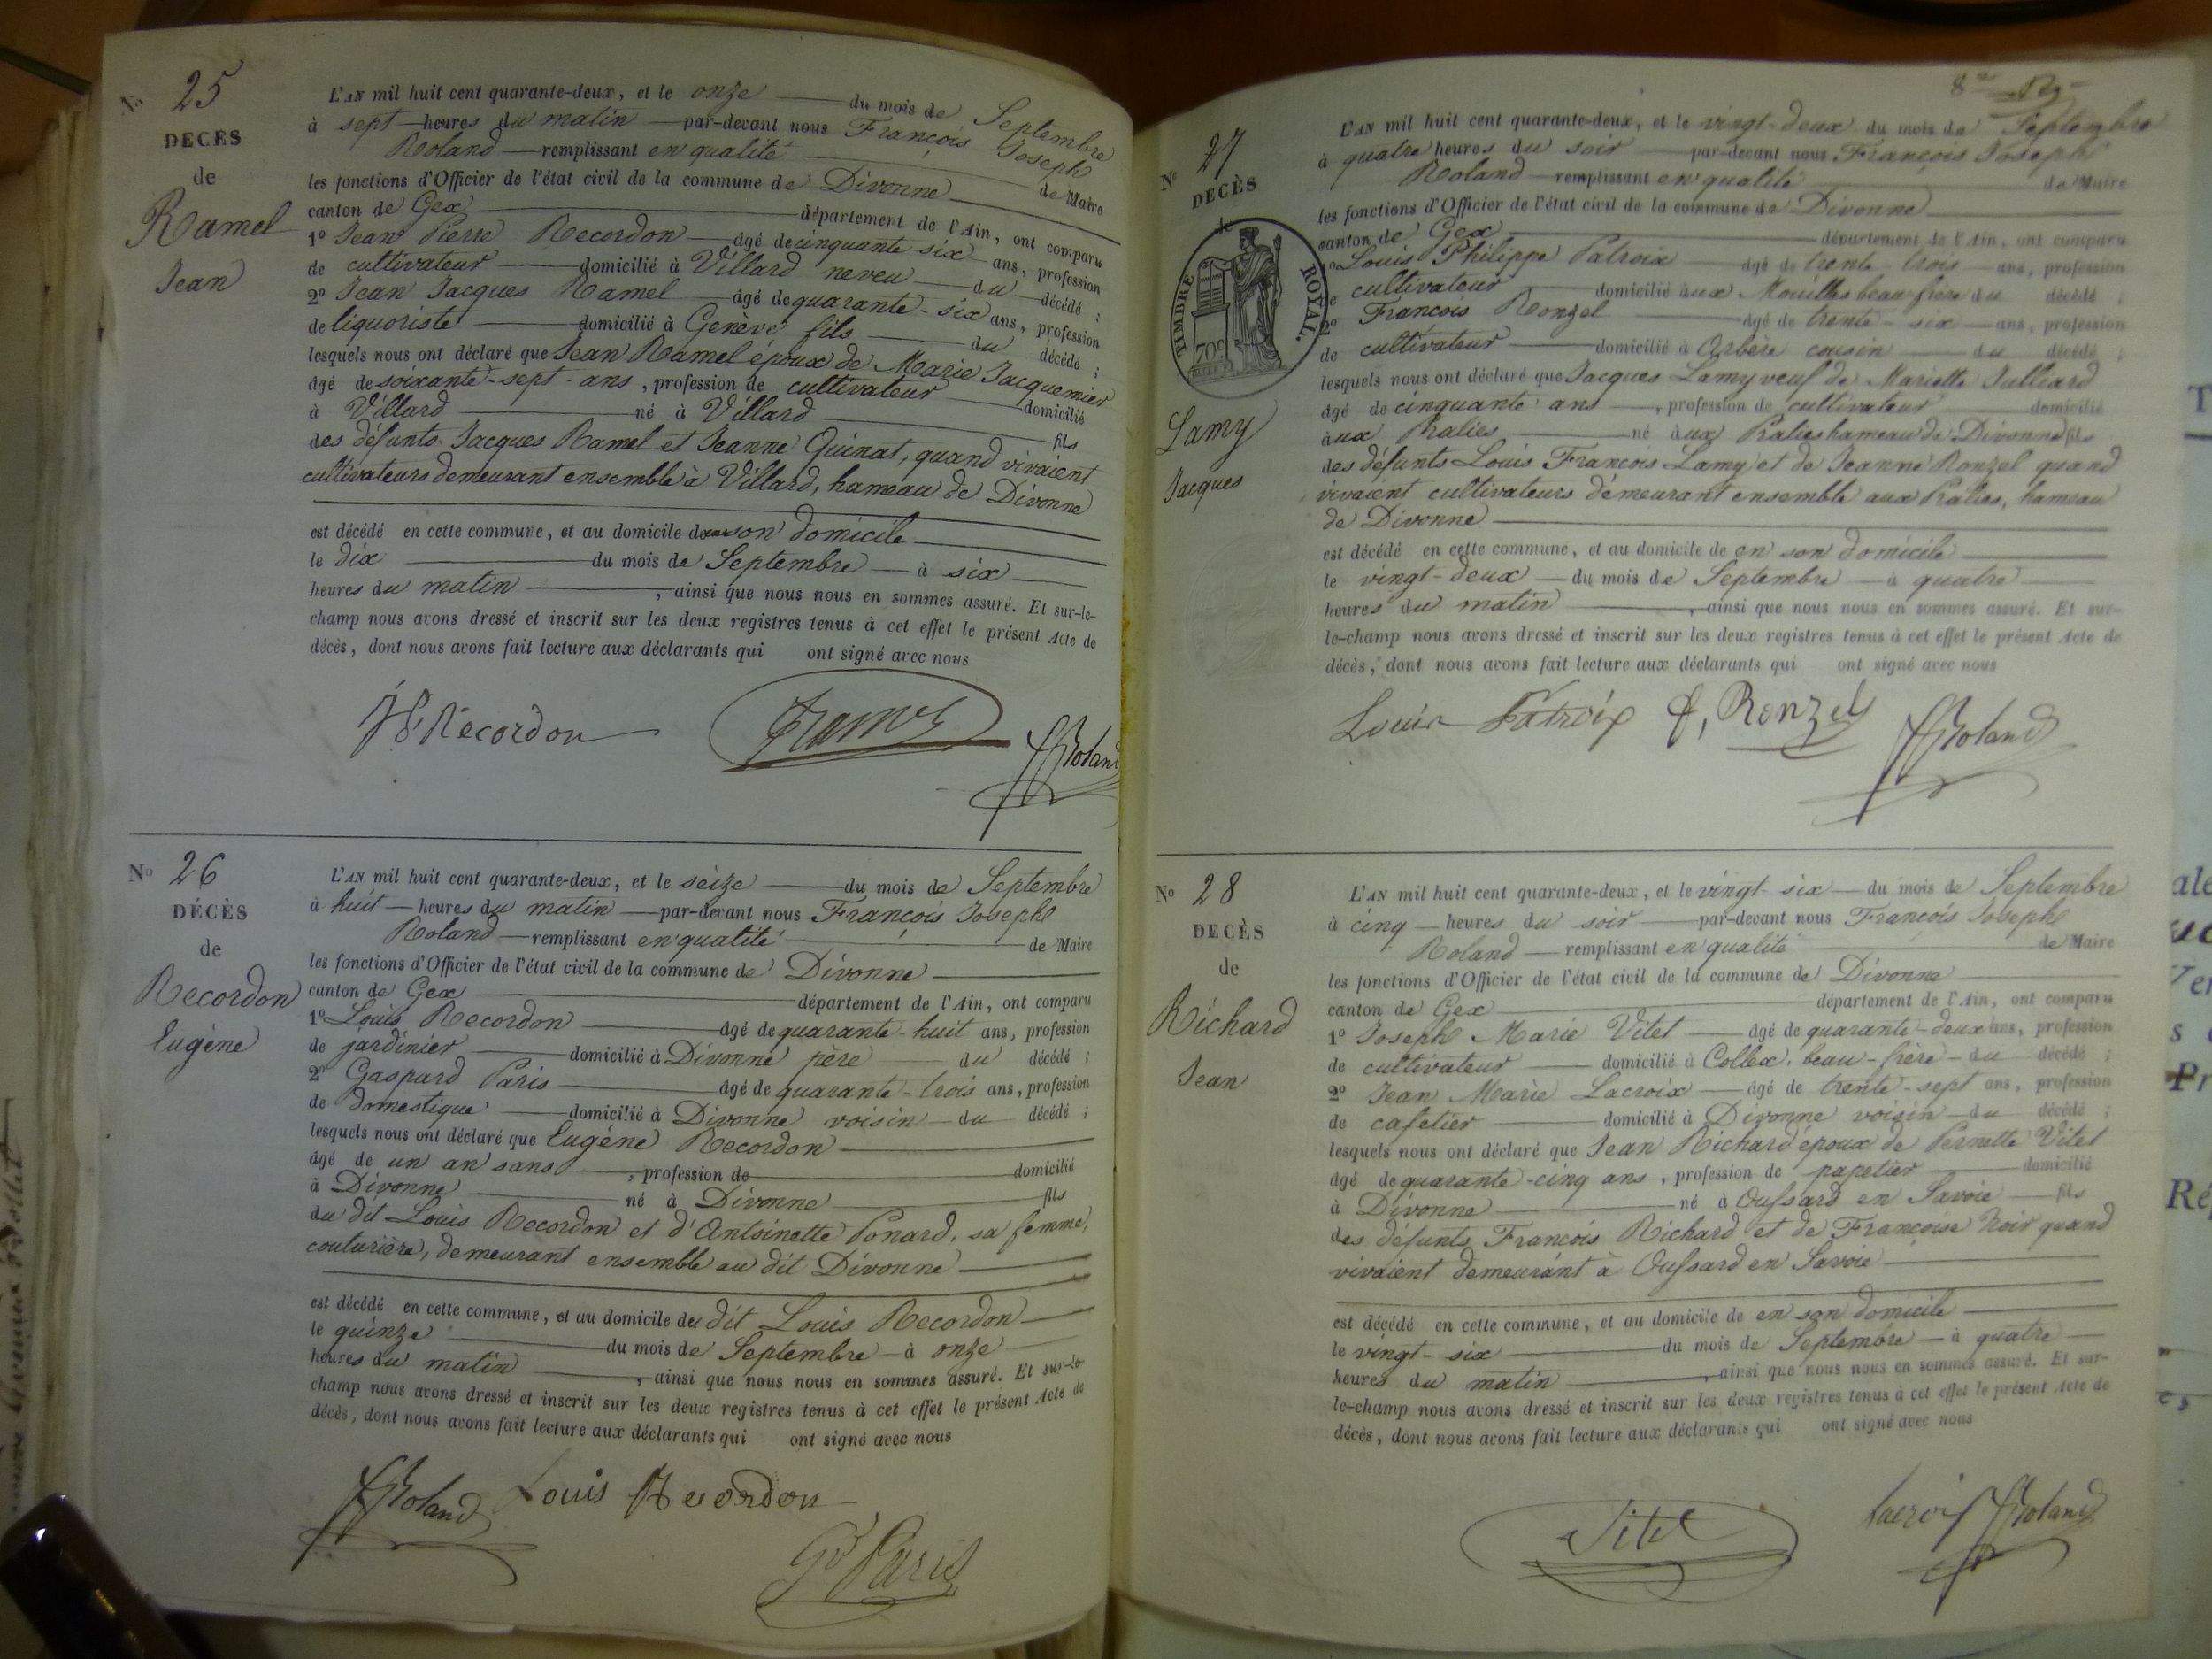 No 25
DÉCÈS
de
Ramel
Jean
L'AN mil huit cent quarante-deux, et le onze du mois de Septembre
à sept heures du matin par-devant nous François Joseph
Roland remplissant en qualité de Maire
les fonctions d'Officier de l'état civil de la commune de Divonne
canton de Gex département de l'Ain, ont comparu
1º Jean Pierre Recordon âgé de cinquante six ans, profession
de cultivateur domicilié à Villard neveu du décédé ;
2º Jean Jacques Ramel âgé de quarante-six ans, profession
de liquoriste domicilié à Genève fils du décédé ;
lesquels nous ont déclaré que Jean Ramel époux de Marie Jacquemier
âgé de soixante-sept-ans, profession de cultivateur domicilié
à Villard né à Villard fils
des défunts Jacques Ramel et Jeanne Quinat, quand vivaient
cultivateurs demeurant ensemble à Villard, hameau de Divonne
est décédé en cette commune, et au domicile de son domicile
le dix du mois de Septembre à six
heures du matin, ainsi que nous nous en sommes assuré. Et sur-le-
champ nous avons dressé et inscrit sur les deux registres tenus à cet effet le présent Acte de
décès, dont nous avons fait lecture aux déclarants qui ont signé avec nous
JP Recordon Ramel FJRoland
No 26
DÉCÈS
de
Recordon
Eugène
L'AN mil huit cent quarante-deux, et le seize du mois de Septembre
à huit heures du matin par-devant nous François Joseph
Roland remplissant en qualité de Maire
les fonctions d'Officier de l'état civil de la commune de Divonne
canton de Gex département de l'Ain, ont comparu
1º Louis Recordon âgé de quarante-huit ans, profession
de jardinier domicilié à Divonne père du décédé ;
2º Gaspard Paris âgé de quarante-trois ans, profession
de domestique domicilié à Divonne voisin du décédé ;
lesquels nous ont déclaré que Eugène Recordon
âgé de un an sans, profession de domicilié
à Divonne né à Divonne fils
du dit Louis Recordon et d'Antoinette Ponard, sa femme,
couturière, demeurant ensemble au dit Divonne
est décédé en cette commune, et au domicile du dit Louis Recordon
le quinze du mois de Septembre à onze
heures du matin, ainsi que nous nous en sommes assuré. Et sur-le-
champ nous avons dressé et inscrit sur les deux registres tenus à cet effet le présent Acte de
décès, dont nous avons fait lecture aux déclarants qui ont signé avec nous
FJRoland Louis Recordon
Gd Paris
8me
No 27
DÉCÈS
de
TIMBRE ROYAL.
70c
Lamy
Jacques
L'AN mil huit cent quarante-deux, et le vingt-deux du mois de Septembre
à quatre heures du soir par-devant nous François Joseph
Roland remplissant en qualité de Maire
les fonctions d'Officier de l'état civil de la commune de Divonne
canton de Gex département de l'Ain, ont comparu
Louis Philippe Patroix âgé de trente-trois ans, profession
cultivateur domicilié aux Mouilles beau-frère du décédé ;
2º François Ronzel âgé de trente-six ans, profession
de cultivateur domicilié à Arbère cousin du décédé ;
lesquels nous ont déclaré que Jacques Lamy veuf de Mariette Julliard
âgé de cinquante ans, profession de cultivateur domicilié
aux Pralies né aux Pralies hameau de Divonne fils
des défunts Louis François Lamy et de Jeanne Ronzel quand
vivaient cultivateurs demeurant ensemble aux Pralies, hameau
de Divonne
est décédé en cette commune, et au domicile de en son domicile
le vingt-deux du mois de Septembre à quatre
heures du matin, ainsi que nous nous en sommes assuré. Et sur-
le-champ nous avons dressé et inscrit sur les deux registres tenus à cet effet le présent Acte de
décès, dont nous avons fait lecture aux déclarants qui ont signé avec nous
Louis Patroix f, Ronzel FJRoland
No 28
DÉCÈS
de
Richard
Jean
L'AN mil huit cent quarante-deux, et le vingt-six du mois de Septembre
à cinq heures du soir par-devant nous François Joseph
Roland remplissant en qualité de Maire
les fonctions d'Officier de l'état civil de la commune de Divonne
canton de Gex département de l'Ain, ont comparu
1º Joseph Marie Vitet âgé de quarante-deux ans, profession
de cultivateur domicilié à Collex, beau-frère du décédé ;
2º Jean Marie Lacroix âgé de trente-sept ans, profession
de cafetier domicilié à Divonne voisin du décédé ;
lesquels nous ont déclaré que Jean Richard époux de Pernette Vitet
âgé de quarante-cinq ans, profession de papetier domicilié
à Divonne né à Oussard en Savoie fils
des défunts François Richard et de Françoise Noir quand
vivaient demeurant à Oussard en Savoie
est décédé en cette commune, et au domicile de en son domicile
le vingt-six du mois de Septembre à quatre
heures du matin, ainsi que nous nous en sommes assuré. Et sur-
le-champ nous avons dressé et inscrit sur les deux registres tenus à cet effet le présent Acte de
décès, dont nous avons fait lecture aux déclarants qui ont signé avec nous
Vitet Lacroix FJRoland